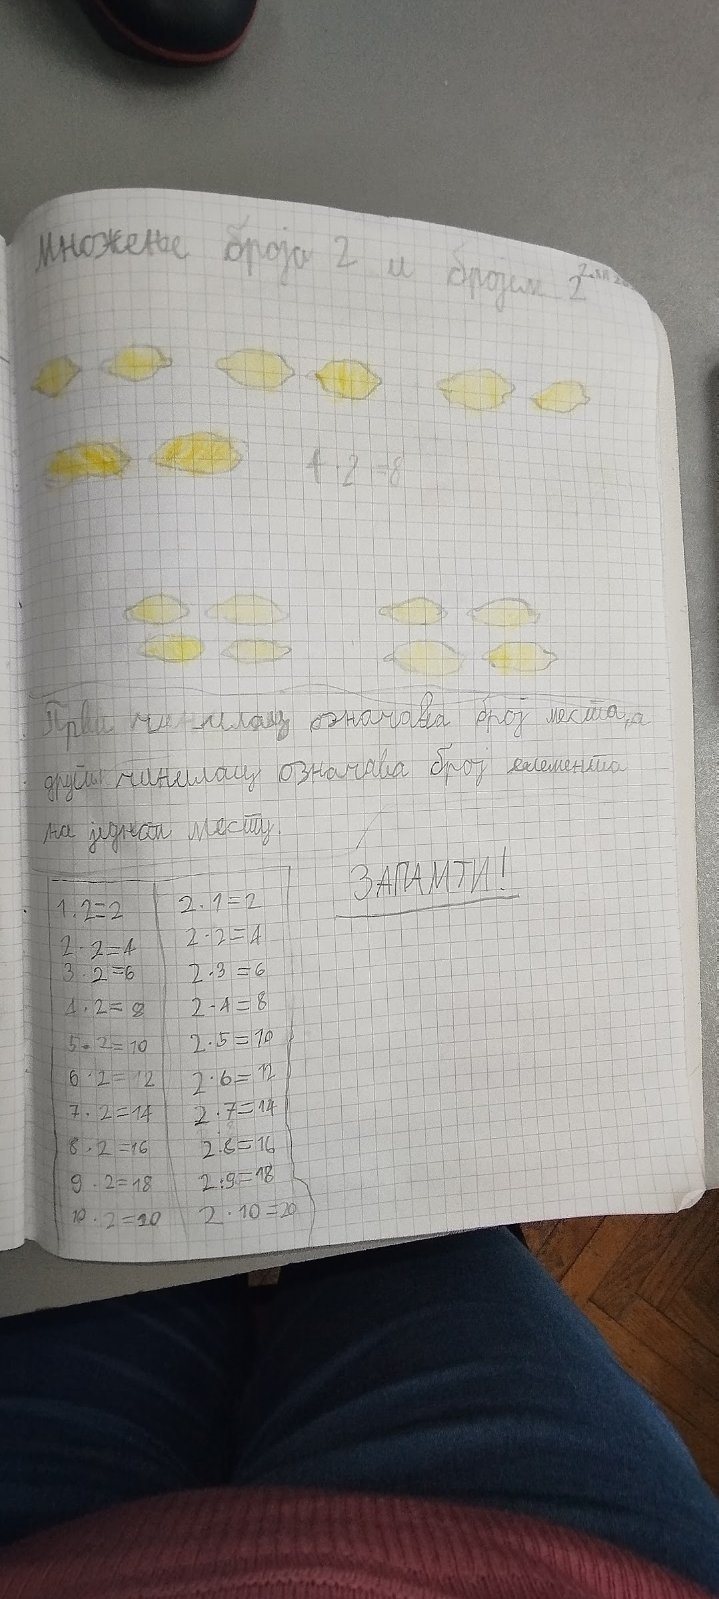 Множење броја 2 и бројем 2
4·2=8
Први чинилац означава број места, а
други чинилац означава број елемената
на једном месту.
ЗАПАМТИ!
1·2=2 2·1=2
2·2=4 2·2=4
3·2=6 2·3=6
4·2=8 2·4=8
5·2=10 2·5=10
6·2=12 2·6=12
7·2=14 2·7=14
8·2=16 2·8=16
9·2=18 2·9=18
10·2=20 2·10=20